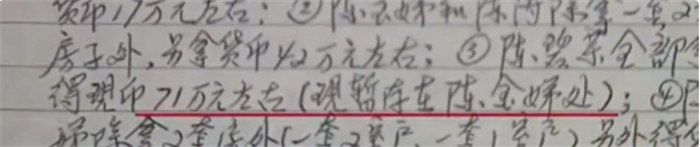 货币17万元左右；②陈金娣和陈内除拿一套2
房子外，另拿货币42万元左右；③陈碧菜全部
得现币71万元左右（现暂存在陈金娣处）；④
娣除拿2套房外（一套2室户、一套1室户）另外得